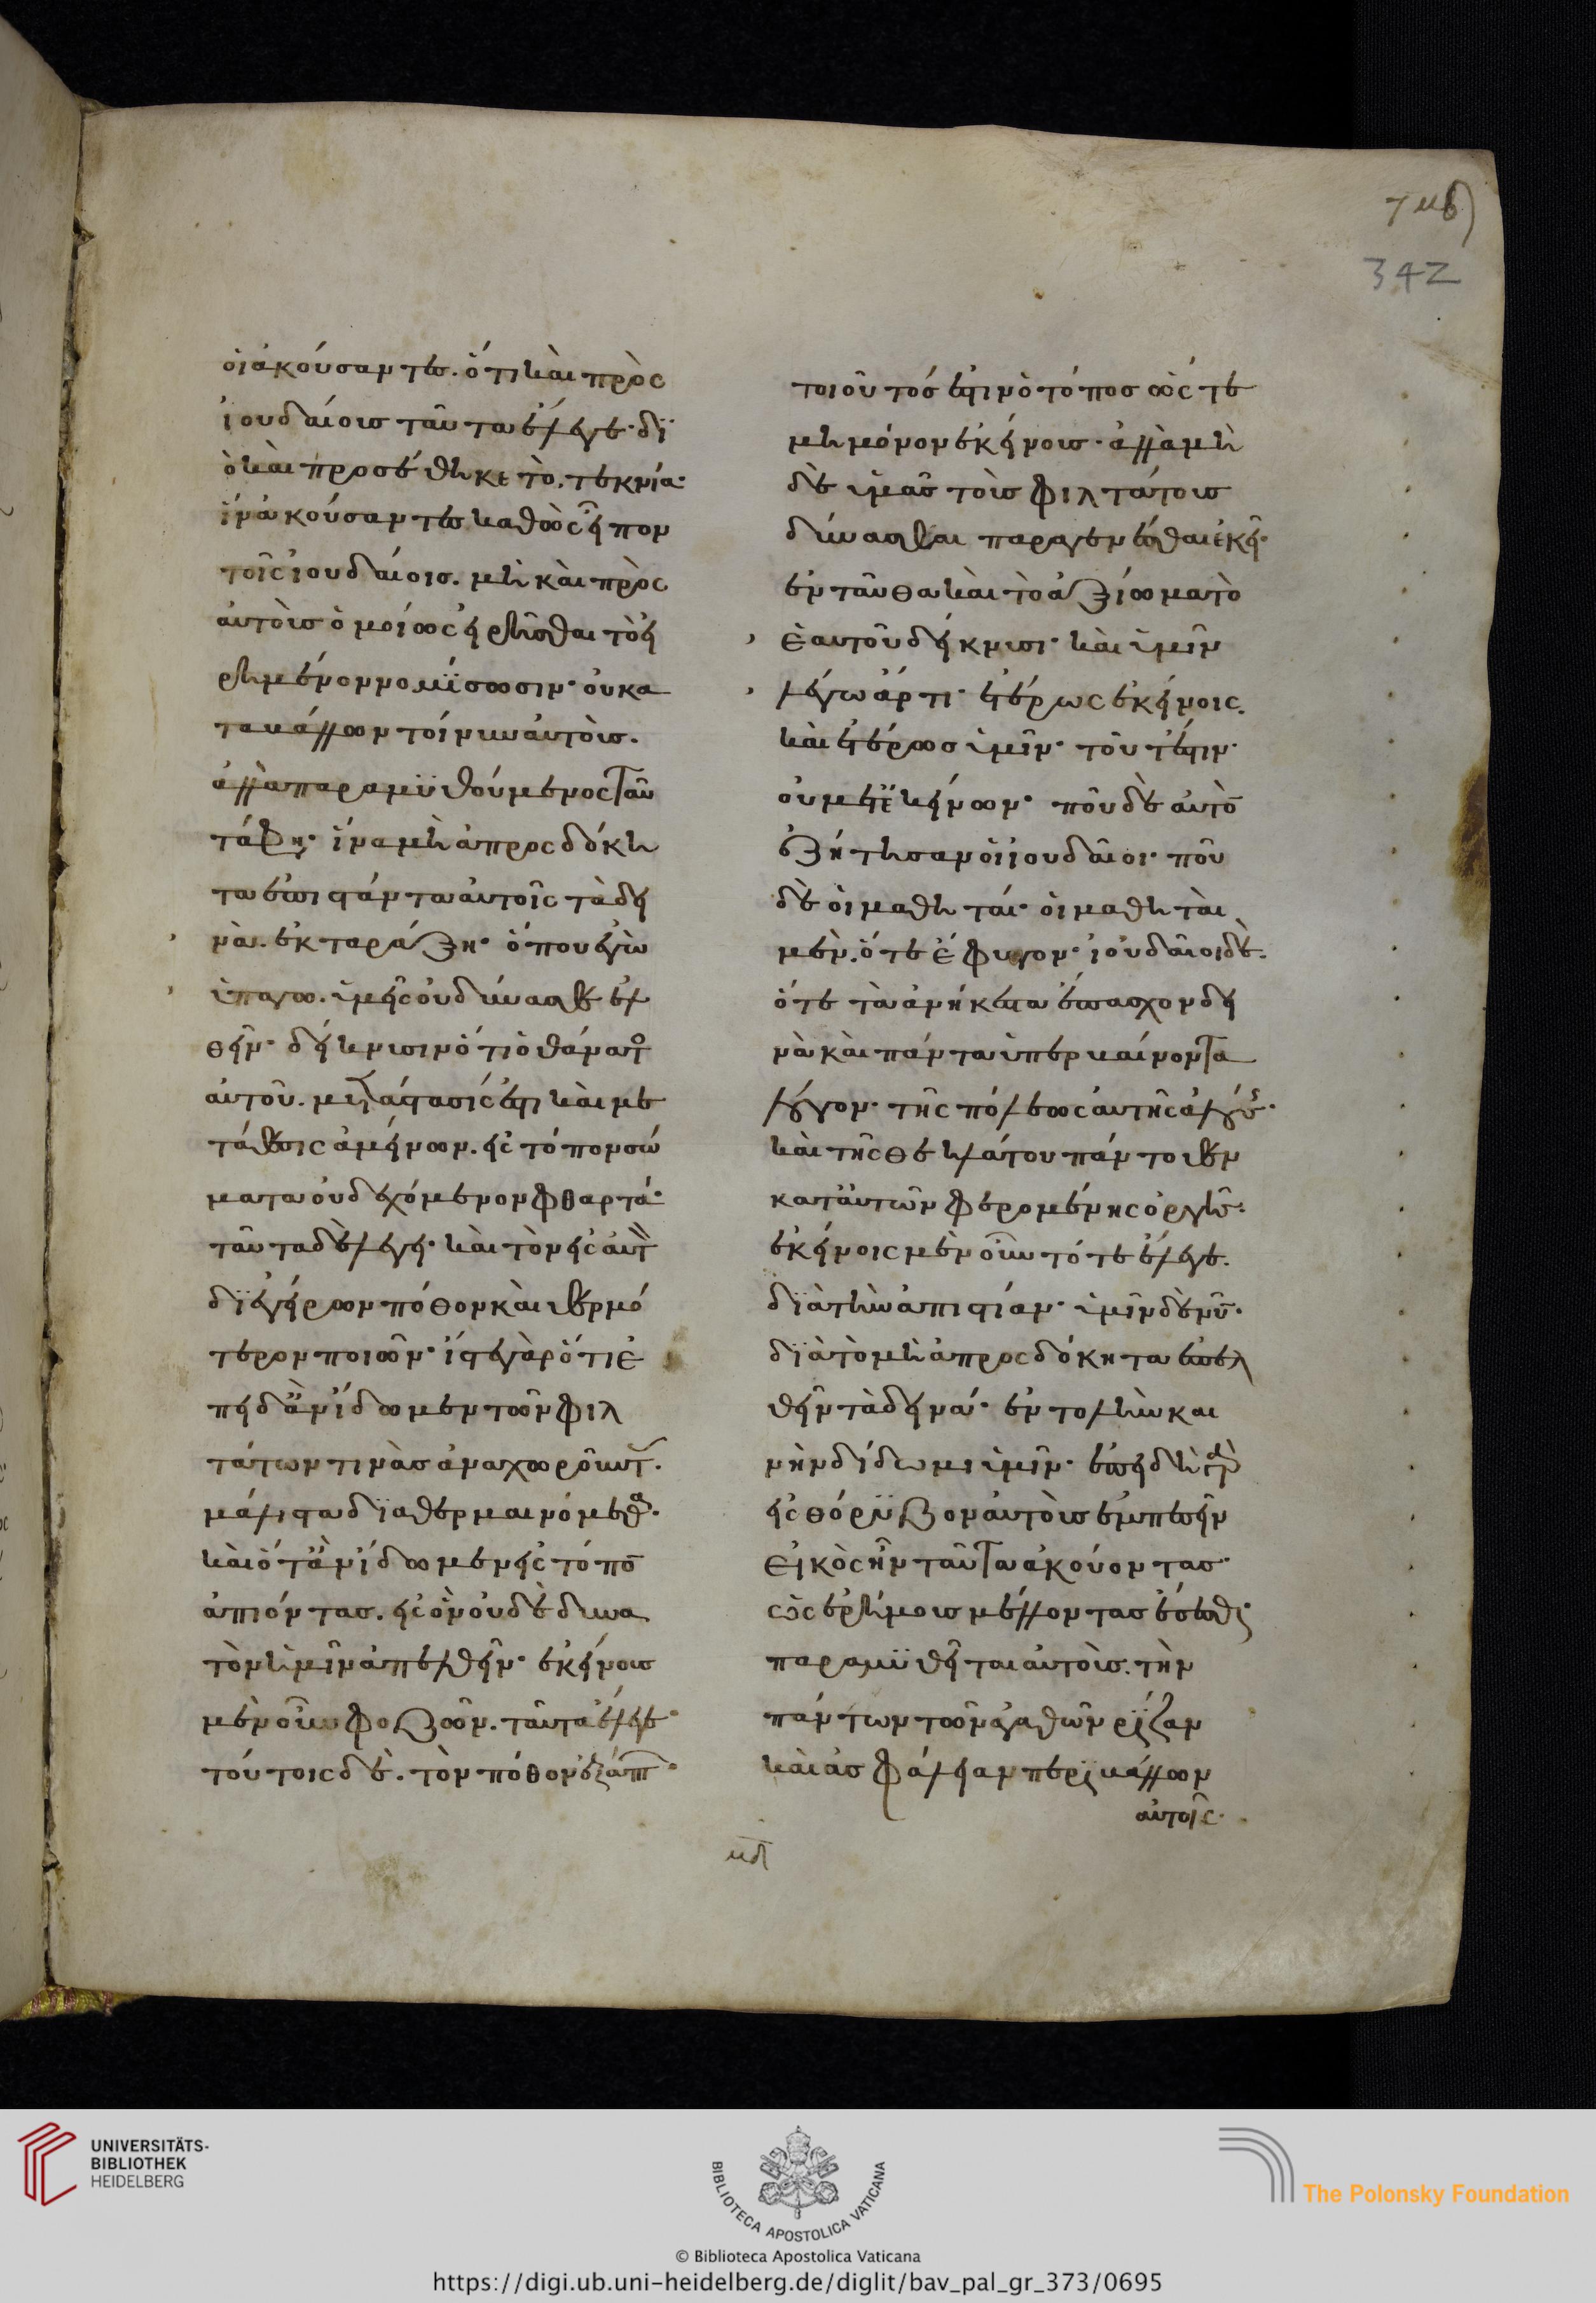 οἱ ἀκούσαντες. ὅτι καὶ πρὸς
ἰουδαίους ταῦτα ἔλεγε· δϊ
ὃ καὶ προσέθηκε τὸ. τεκνία·
ἵν ἀκούσαντες καθὼς εἶπον
τοῖς ἰουδαίοις. μὴ καὶ πρὸς
αὐτοὺς ὁμοίως εἰρῆσθαι τὸ εἰ
ρημένον νομΐσωσιν· οὐ κα
ταβάλλων τοίνυν αὐτοὺς.
ἀλλὰ παραμϋθούμενος ταῦ
τά φησι· ἵνα μὴ ἀπροσδόκη
τα ἐπιστάντα αὐτοῖς τὰ δει
νὰ. ἐκταράξη· ὅπου ἐγὼ
ὑπαγω. ὑμεῖς οὐ δύνασθε ἐλ
θεῖν· δείκνυσιν ὅτι ὁ θάνατος
αὐτοῦ. μετάστασίς ἐστι καὶ με
τάθεσις ἀμείνων. εἰς τόπον σώ
ματα οὐ δεχόμενον φθαρτά·
ταῦτα δὲ λέγει· καὶ τὸν εἰς αὐτὸν
δϊεγείρων πόθον καὶ θερμό
τερον ποιῶν· ἴστε γὰρ ὅτι ἐ
πειδὰν ἴδωμεν τῶν φιλ
τάτων τινὰς ἀναχωροῦντας.
μάλιστα δϊαθερμαινόμεθα·
καὶ ὅταν ἴδωμεν εἰς τόπον
ἀπιόντας. εἰς ὃν οὐδὲ δυνα
τὸν ἡμῖν ἀπελθεῖν· ἐκείνους
μὲν οὖν φοβῶν. ταῦτα ἔλεγε·
τούτοις δὲ. τὸν πόθον ἐξάπτων·
τοιοῦτός ἐστιν ὁ τόπος ὥς τε
μὴ μόνον ἐκείνους· ἀλλὰ μὴ
δὲ ὑμᾶς τοὺς φιλτάτους
δύνασθαι παραγενέσθαι ἐκεῖ·
ἐνταῦθα καὶ τὸ ἀξίωμα τὸ
ἑαυτοῦ δείκνυσι· καὶ ὑμῖν
λέγω ἄρτι· ἑτέρως ἐκείνοις.
καὶ ἑτέρως ὑμῖν· τοῦτ ἔστιν·
οὐ μετ ἐκείνων· ποῦ δὲ αὐτὸν
ἐζήτησαν οἱ ἰουδαῖοι· ποῦ
δὲ οἱ μαθηταί· οἱ μαθηταὶ
μὲν. ὅτε ἔφυγον· ἰουδαῖοι δὲ.
ὅτε τὰ ἀνήκεστα ἔπασχον δει
νὰ καὶ πάντα ὑπερβαίνοντα
λόγον· τῆς πόλεως αὐτῆς ἁλούσης·
καὶ τῆς θεηλάτου πάντοθεν
κατ αὐτῶν φερομένης ὀργῆς·
ἐκείνοις μὲν οὖν τότε ἔλεγε.
δϊὰ τὴν ἀπιστίαν· ὑμῖν δὲ νῦν·
δϊὰ τὸ μὴ ἀπροσδόκητα ἐπελ
θεῖν τὰ δεινά· ἐντολὴν και
νὴν δίδωμι ὑμῖν· ἐπειδὴ γὰρ
εἰς θόρϋβον αὐτοὺς ἐμπεσεῖν
εἰκὸς ἦν ταῦτα ἀκούοντας·
ὡς ἐρήμους μέλλοντας ἔσεσθαι
παραμϋθεῖται αὐτοὺς. τὴν
πάντων τῶν ἀγαθῶν ρίζαν
καὶ ἀσφάλειαν περιβάλλων
αὐτοῖς·
342
UNIVERSITÄTS-
BIBLIOTHEK
HEIDELBERG
BIBLIOTECA APOSTOLICA VATICANA
© Biblioteca Apostolica Vaticana
The Polonsky Foundation
https://digi.ub.uni-heidelberg.de/diglit/bav_pal_gr_373/0695